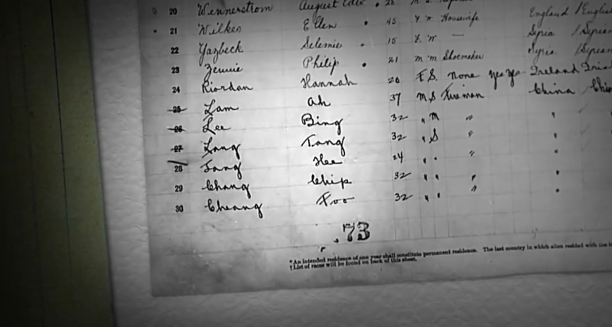 20 Wennerstrom August
21 Wilkes Ellen 45 Housewife England / English
22 Yazbeck Selemie 15 Syria / Syrian
23 Philip 21 M M Shoemaker Syria / Syrian
24 Riordan Hannah 26 F S. None yes yes Ireland
25 Lam Ah 37 M S Fireman China
26 Lee Bing 32 " M "
27 Lang Tang 32 " S "
28 Fang Hee 24 " " "
29 Chang Chip 32 " " "
30 Cheang Foo 32 " " "
73
*An intended residence of one year shall constitute permanent residence. The last country in which alien resided with the
†List of races will be found on back of this sheet.